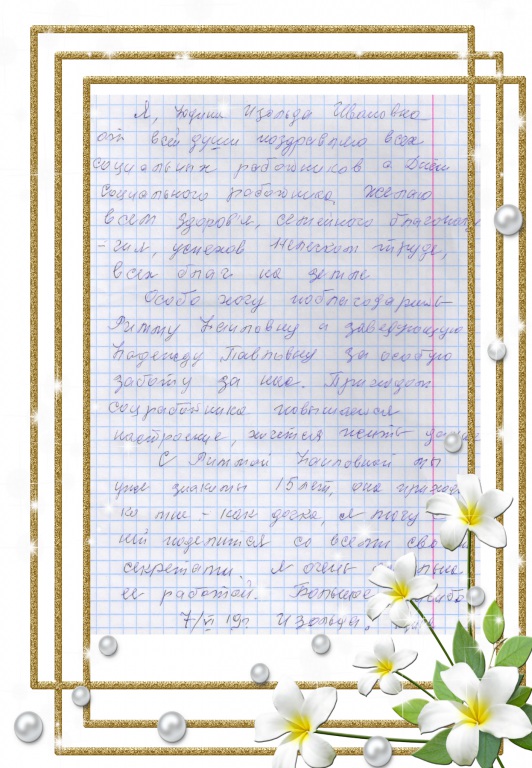 Я, Изольда Ивановна
от всей души поздравляю всех
социальных работников с Днём
социального работника, желаю
всем здоровья, семейного благополу
-чия, успехов нелегком труде,
всех благ на земле
Особо хочу поблагодарить
Римму Наиловну и заведующую
Надежду Павловну за особую
заботу за нас. Приходом
соцработника повышается
настроение, хочется жить
С Риммой Наиловной мы
уже знакомы 15 лет, она
ко мне - как дочка, я могу
ней поделиться со всеми
секретами. Я очень
ее работой. Большое
7/VI 19г Изольда